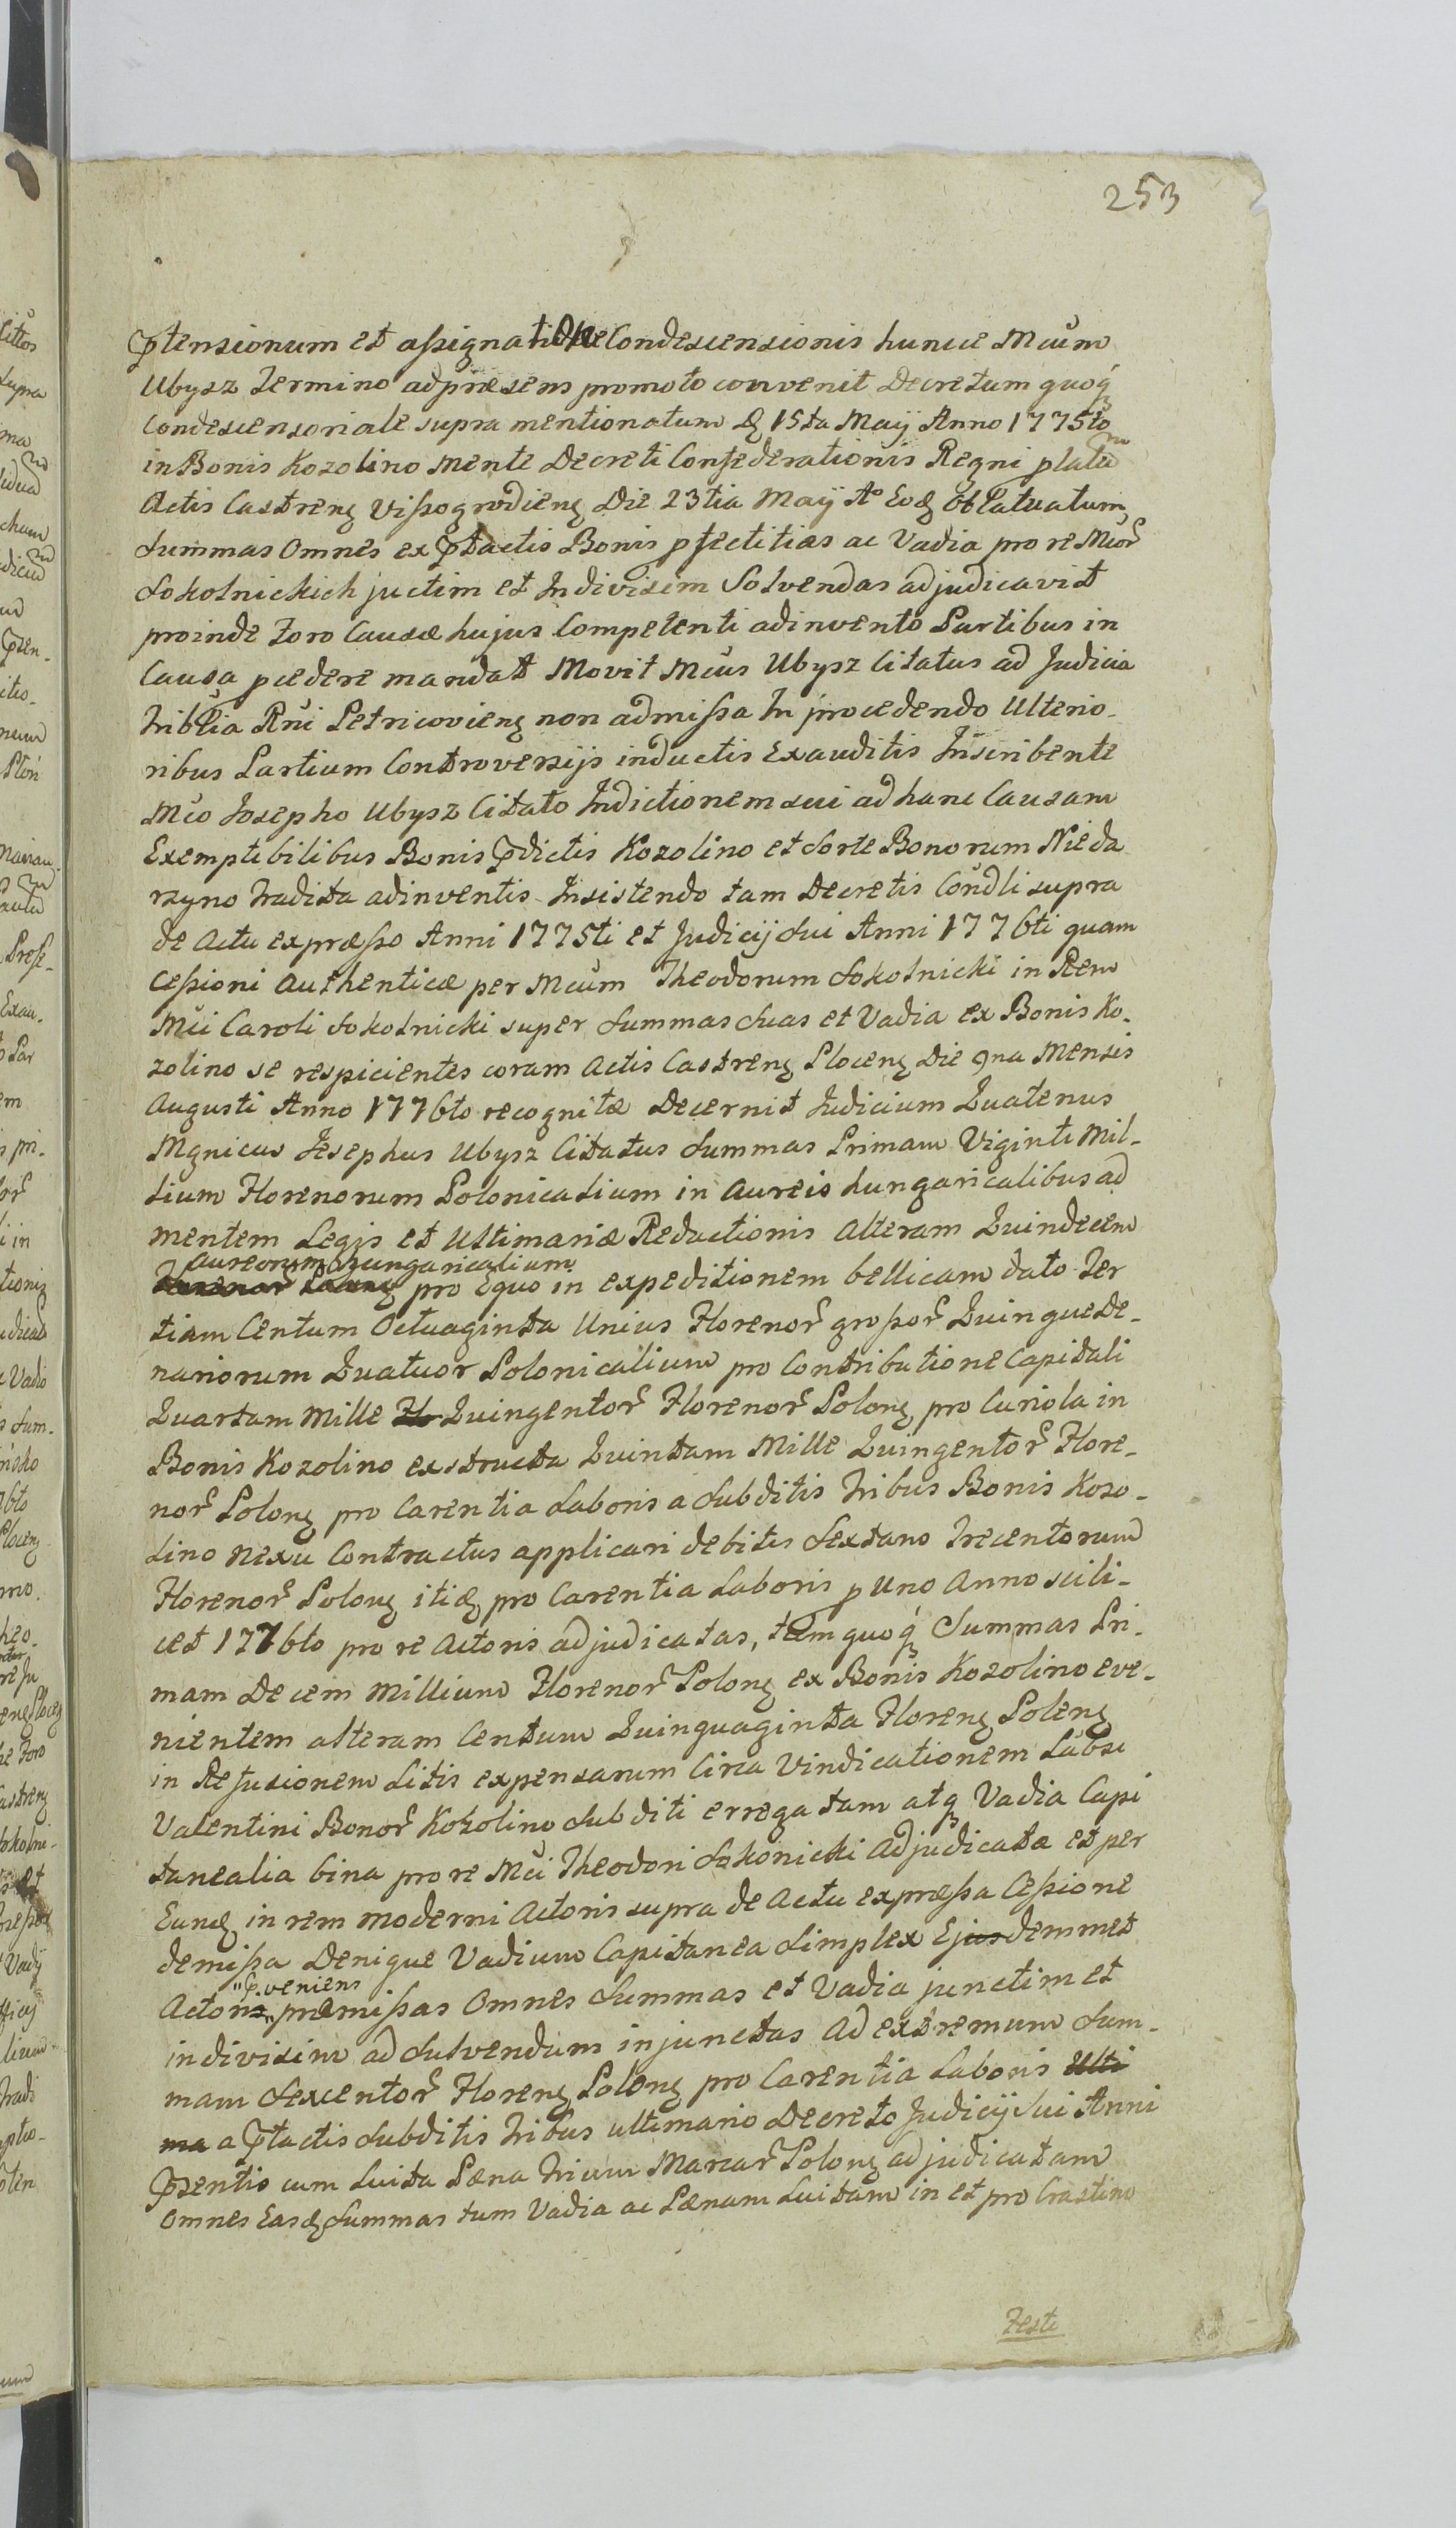 253
Ptensionum et assignatione Condescensionis hunce Mcum
Ubysz Termino adpræsens promoto convenit Decretum quoq
Condescensoriale supra mentionatum d 15ta Maij Anno 1775to
in Bonis Kozolino mente Decreti Confederationis Regni platum
Actis Castren Vissogrodien Die 23tia Maij Ao Eod Oblatuatum
Summas Omnes ex Ptactis Bonis pfectitias ac Vadia pro re Mcor
Sokolnickich juctim et Indivisim Solvendas adjudicavit
proinde Foro Causæ hujus Competenti adinvento Partibus in
Causa pcedere mandat Movit Mcus Ubysz Citatus ad Judicia
Triblia Rni Petricovien non admissa In procedendo Ulterio-
ribus Partium Controversijs inductis Exauditis Inscribente
Mco Josepho Ubysz Citato Indictionem sui ad hanc Causam
Exemptibilibus Bonis Pdictis Kozolino et Sorte Bonorum Nieda
rzyno Tradita adinventis Insistendo tam Decretis Condli supra
de Actu expræsso Anni 1775ti et Judicij Sui Anni 1776ti quam
Cessioni Authenticæ per Mcum Theodorum Sokolnicki in Rem
Mci Caroli Sokolnicki super Summas Suas et Vadia ex Bonis Ko-
zolino se respicientes coram Actis Castren Plocen Die 9na Mensis
Augusti Anno 1776to recognitæ Decernit Judicium Quatenus
Mgnicus Josephus Ubysz Citatus Summas Primam Viginti Mil-
lium Florenorum Polonicalium in Aureis hungaricalibus ad
mentem Legis et Ultimariæ Reductionis Alteram Quindecem
Aureorum hungaricalium
Florenor Polong pro Equo in expeditionem bellicam dato Ter
tiam Centum Octuaginta Unius Florenor grossor Quinque De-
nariorum Quatuor Polonicalium pro Contributione Capitali
Quartam Mille Flo Quingentor Florenor Polong pro Curiola in
Bonis Kozolino exstructa Quintam Mille Quingentor Flore-
nor Polong pro Carentia Laboris a Subditis Tribus Bonis Kozo-
lino Nexu Contractus applicari debitis Sextam Trecentorum
Florenor Polong itid pro Carentia Laboris p Uno Anno scili-
cet 1776to pro re Actoris adjudicatas, tum quoq Summas Pri-
mam Decem Millium Florenor Polong ex Bonis Kozolino eve-
nientem alteram Centum Quinquaginta Floren Polong
in Refusionem Litis expensarum Circa Vindicationem Labsi
Valentini Bonor Kozolino Subditi errogatam atq Vadia Capi
tanealia bina pro re Mci Theodori Sokonicki Adjudicata et per
Eund in rem moderni Actoris supra de Actu expræssa Cessione
demissa Denique Vadium Capitanea Simplex Ejusdemmet
"pveniens
Actoris" præmissas Omnes Summas et Vadia junctim et
indivisim ad Solvendum injunctas Ad extremum Sum-
mam Sexcentor Floren Polong pro Carentia Laboris Ulti
ma a Ptactis Subditis Tribus ultimario Decreto Judicij Sui Anni
Psentis cum Luita Pæna Trium Marcar Polong adjudicatam
Omnes Easd Summas tum Vadia ac Pænam Luitam in et pro Crastino
Festi